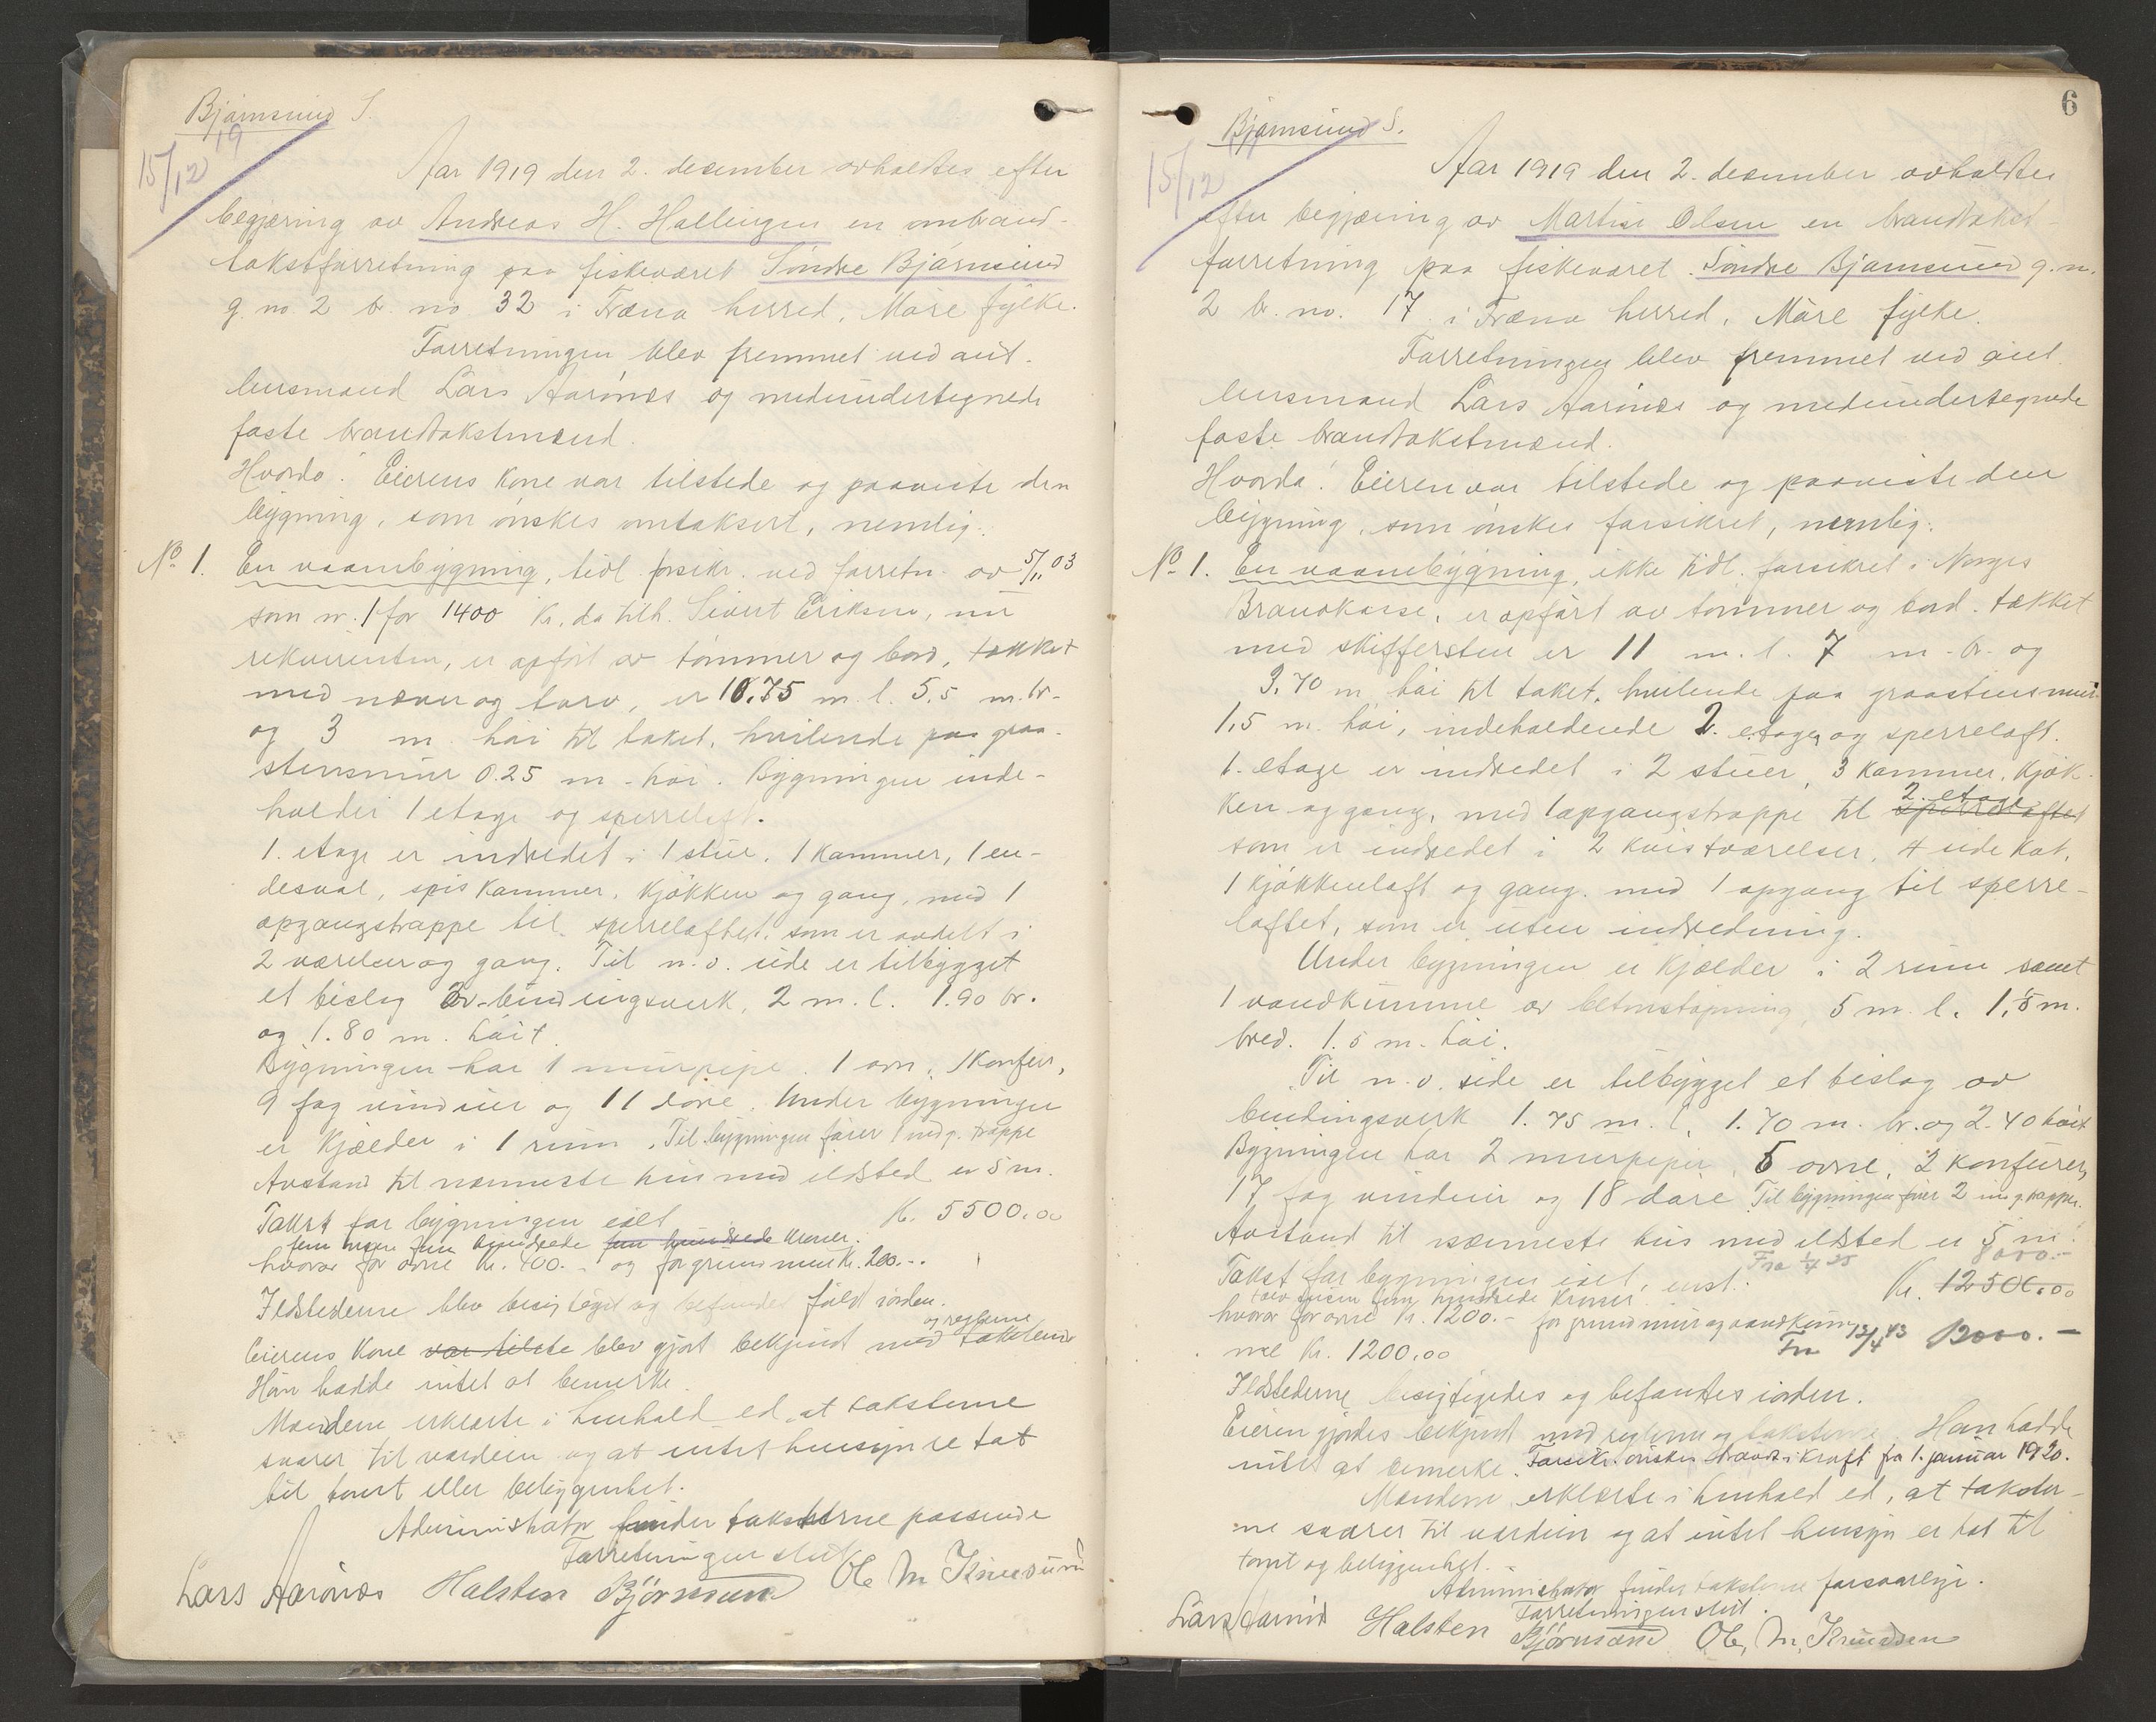 Bjørnsund S.
15/12 19
Aar 1919 den 2. desember avholdtes efter
begjæring av Andreas H. Hallingen en ombrand-
takstforretning paa fiskeværet Søndre Bjørnsund
g. no. 2 br. no 32 i Fræna herred, Møre fylke.
Forretningen blev fremmet ved aut.
lensmand Lars Aarönæs og medundertegnede
faste brandtakstmænd.
Hvorda: Eierens kone var tilstede og paaviste den
bygning, som ønskes omtaksert, nemlig:
No. 1. En vaanebygning, tidl. forsikr. ved forretn. av 5/11 03
som nr. 1 for 1400 kr. da tilh. Sivert Eriksen, nu
rekvirenten, er opført av tømmer og bord, tækket
med næver og torv, er 10.75 m. l. 5.5 m. br.
og 3 m. høi til taket, hvilende paa graa-
stensmur 0.25 m. høi. Bygningen inde-
holder 1 etage og sperreloft.
1. etage er indredet i 1 stue, 1 kammer, 1 en-
desval, spiskammer, kjøkken og gang, med 1
opgangstrappe til sperreloftet, som er avdelt i
2 værelser og gang. Til n.v. side er tilbygget
et bislag av bindingsverk, 2 m. l. 1.90 br.
og 1.80 m. høit
Bygningen har 1 murpipe, 1 ovn, 1 komfur,
9 fag vinduer og 11 døre. Under bygningen
er kjælder i 1 rum. Til bygningen fører 1 indg. trappe
Avstand til nærmeste hus med ildsted er 5 m.
Takst for bygningen ialt Kr. 5500.00
fem tusen fem hundrede fem hundrede kroner.
hvorav for ovne kr. 400.- og for grundmur kr. 200.-.
Ildstederne blev besigtiget og befundet fuldt iorden.
og reglerne
Eierens kone var tilste blev gjort bekjendt med taksterne
Hun hadde intet at bemerke.
Mændene erklærte i henhold ed, at taksterne
svarer til værdien og at intet hensyn er tat
til tomt eller beliggenhet.
Administrator finder taksterne passende
Forretningen slut
Lars Aarönæs Halsten Björnsund Ole M Knudsund
6
Bjørnsund S.
15/12 19
Aar 1919 den 2. desember avholdtes
efter begjæring av Martin Olsen en brandtakst
forretning paa fiskeværet Søndre Bjørnsund g. n.
2 br. no. 17 i Fræna herred, Møre fylke.
Forretningen blev fremmet ved aut.
lensmand Lars Aarönæs og medundertegnede
faste brandtakstmænd.
Hvorda: Eieren var tilstede og paaviste den
bygning, som ønskes forsikret, nemlig:
No. 1. En vaanebygning, ikke tidl. forsikret i Norges
Brandkasse, er opført av tømmer og bord. tækket
med skiffersten er 11 m. l. 7 m. br. og
3.70 m høi til taket, hvilende paa graastensmur
1.5 m. høi, indeholdende 2. etager og sperreloft.
1. etage er indredet i 2 stuer, 3 kammer, kjøk-
ken og gang, med 1 opgangstrappe til sperreloftet 2. etage
som er indredet i 2 kvistværelser, 4 sidekot,
1 kjøkkenloft og gang. med 1 opgang til sperre-
loftet, som er uten indredning.
Under bygningen er kjælder i 2 rum samt
1 vandkumme av betonstøpning, 5 m. l. 1,5 m.
bred. 1.5 m. høi.
Til n.v. side er tilbygget et bislag av
bindingsverk 1.75 m. l. 1.70 m. br. og 2.40 høit
Bygningen har 2 murpiper, 5 ovne, 2 komfurer,
17 fag vinduer og 18 døre Til bygningen fører 2 indg. trapper.
Avstand til nærmeste hus med ildsted er 5 m.
Fra 1/4 25 8000.-
Takst for bygningen ialt, enst. Kr. 12500.00
tolv tusen fem hundrede kroner
hvorav for ovne kr. 1200.- for grundmur og vandkum-
me Kr. 1200.00 Fra 13/4 43 13000.-
Ildstederne besigtigedes og befantes iorden.
Eieren gjordes bekjendt med reglerne og taksterne. Han hadde
intet at bemerke. Forsikr. ønskes traadt i kraft fra 1. januar 1920.
Mændene erklærte i henhold ed, at takster-
ne svarer til værdien og at intet hensyn er tat til
tomt og beliggenhet.
Administrator finder taksterne forsvarlige.
Forretningen slut.
Lars Aarönæs Halsten Björnsund Ole M. Knudsen